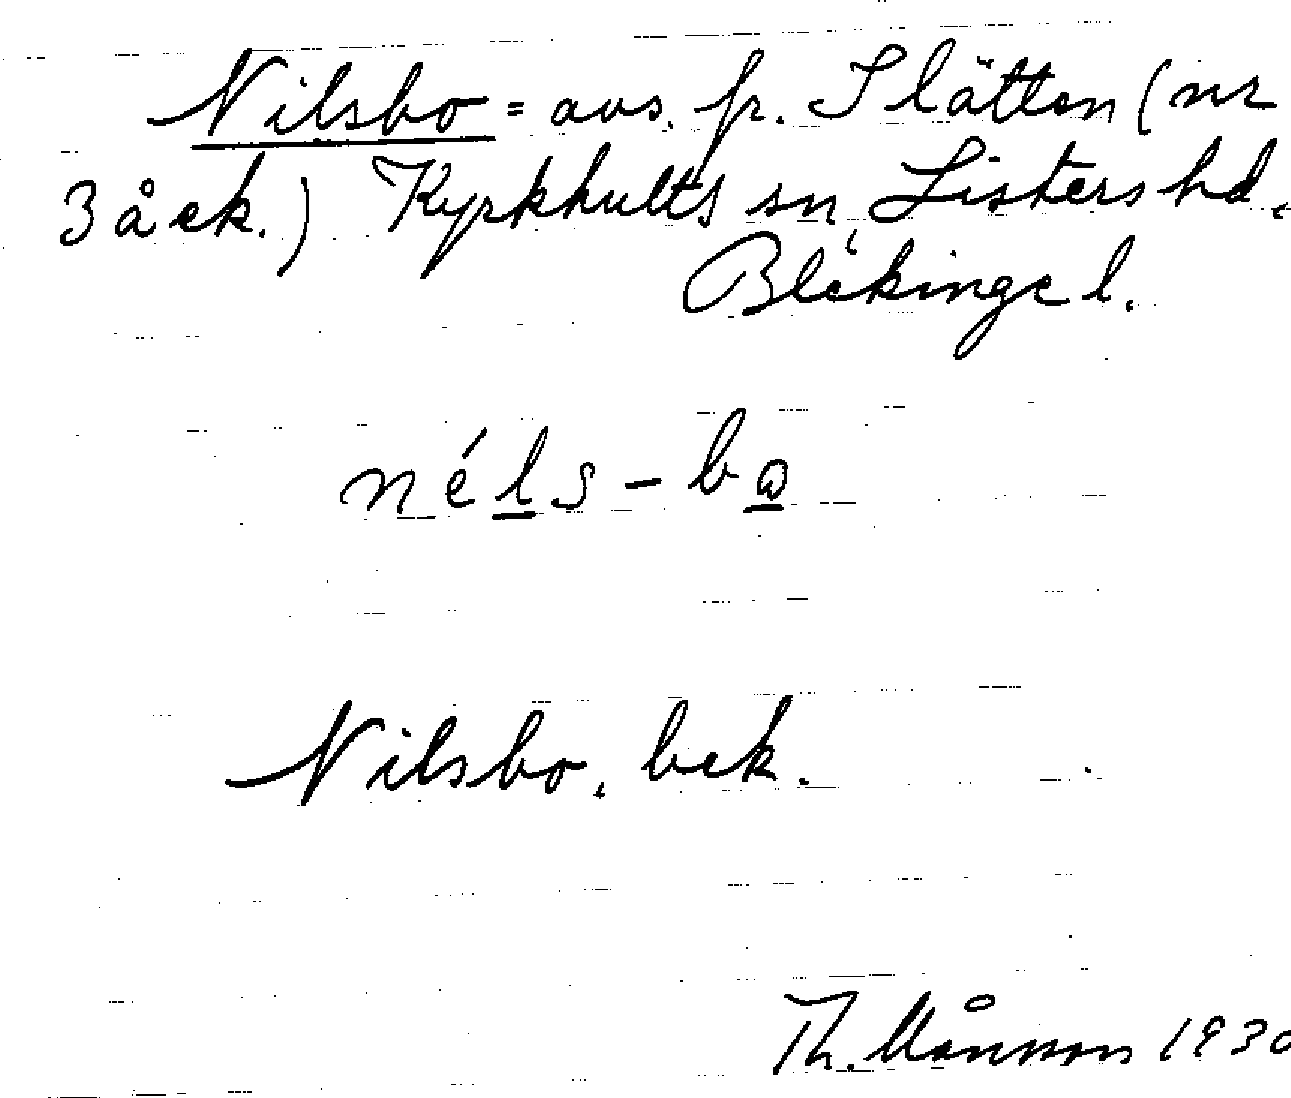 Nilsbo = avs. fr. Slätten (nr
3 å ek.) Kyrkhults sn, Listers hd.
Blekinge l.
néls - bo
Nilsbo. bek.
Th. Månsson 1930